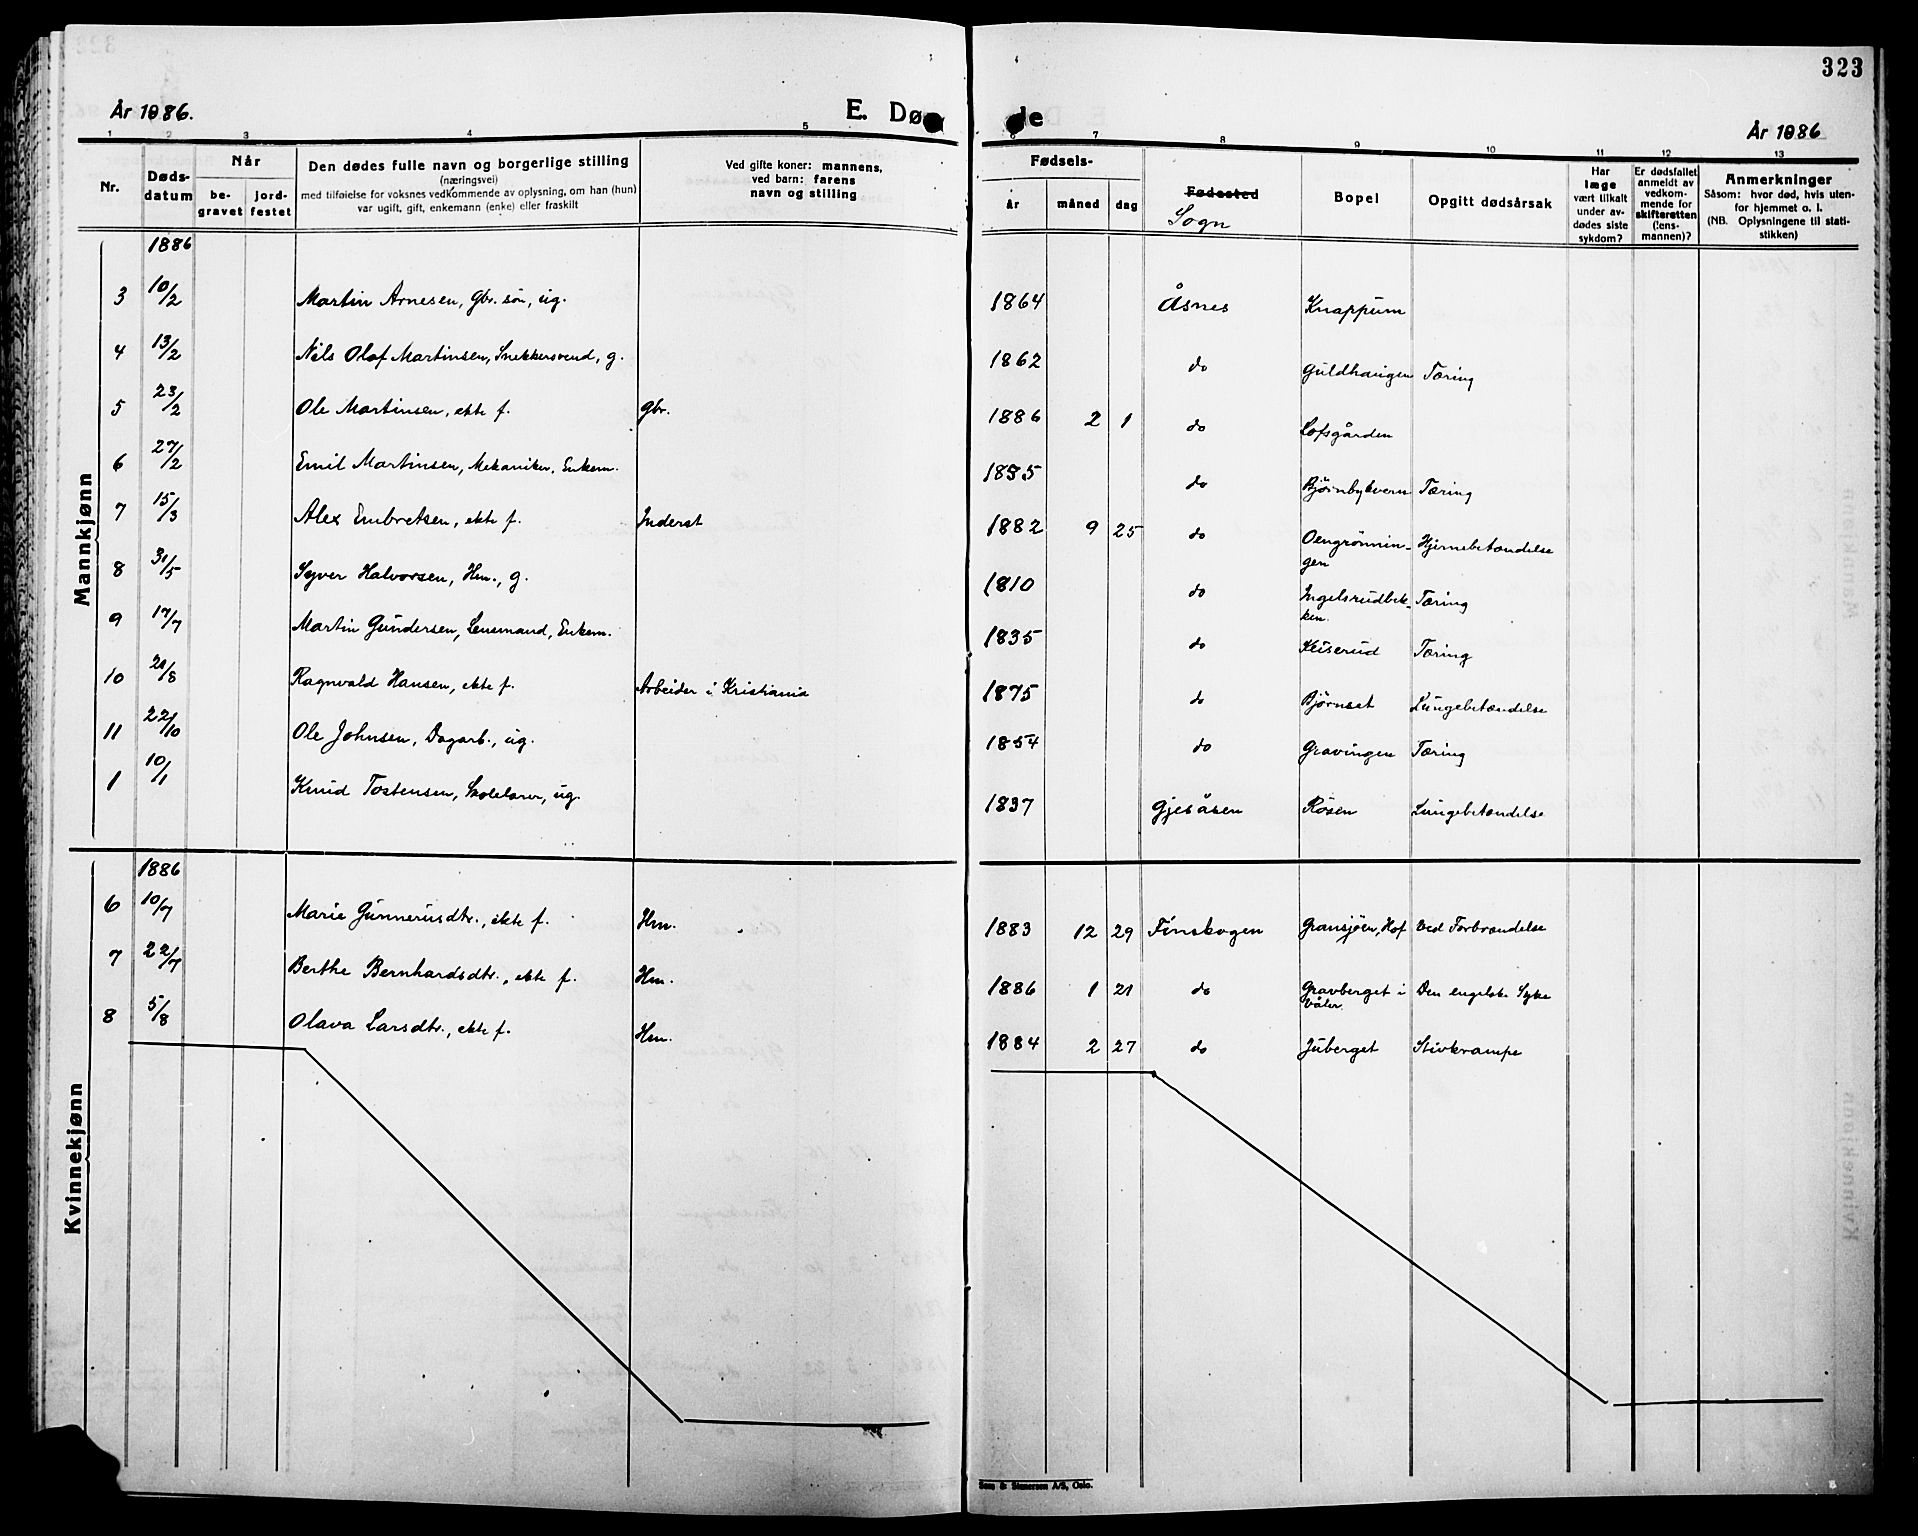 323
År 1886.
E. Dø de
År 1886
1 2 3 4 5 6 7 8 9 10 11 12 13
Nr.
Døds-
datum
Når
be-
gravet
jord-
festet
Den dødes fulle navn og borgerlige stilling
(næringsvei)
med tilføielse for voksnes vedkommende av oplysning, om han (hun)
var ugift, gift, enkemann (enke) eller fraskilt
Ved gifte koner: mannens,
ved barn: farens
navn og stilling
Fødsels-
år måned dag
Fødested
Sogn
Bopel
Opgitt dødsårsak
Har
læge
vært tilkalt
under av-
dødes siste
sykdom?
Er dødsfallet
anmeldt av
vedkom-
mende for
skifteretten
(lens-
mannen)?
Anmerkninger
Såsom: hvor død, hvis uten-
for hjemmet o. l.
(NB. Oplysningene til stati-
stikken)
Mannkjønn
1886
3 10/2 Martin Arnesen, Gbr. søn, ug. 1864 Åsnes Knappum
4 13/2 Nils Olaf Martinsen, Snekkersvend, g. 1862 do Guldhaugen Tæring
5 23/2 Ole Martinsen, ekte f. gbr. 1886 2 1 do Lofsgården
6 27/2 Emil Martinsen, Mekaniker, Enkem. 1855 do Bjørnbykvern Tæring
7 15/3 Alex Embretsen, ekte f. Inderst 1882 9 25 do Oengrønnin- Hjernebetændelse
gen
8 31/5 Syver Halvorsen, Hm., g. 1810 do Ingelsrudbek- Tæring
ken.
9 17/7 Martin Gundersen, Lensmand, Enkem. 1835 do Keiserud Tæring
10 20/8 Ragnvald Hansen, ekte f. Arbeider i Kristiania 1875 do Bjørnset Lungebetændelse
11 22/10 Ole Johnsen, Dagarb., ug. 1854 do Gravingen Tæring
1 10/1 Knud Tostensen, Skolelærer, ug. 1837 Gjesåsen Røsen Lungebetændelse
Kvinnekjønn
1886
6 10/7 Marie Gunnerusdtr., ekte f. Hm. 1883 12 29 Finskogen Gransjøen, Hof Ved Forbrændelse
7 22/7 Berthe Bernhardsdtr., ekte f. Hm. 1886 1 21 do Gravberget i Den engelske Syke
Våler.
8 5/8 Olava Larsdtr., ekte f. Hm. 1884 2 27 do Juberget Stivkrampe
Sem & Stenersen A/S, Oslo.